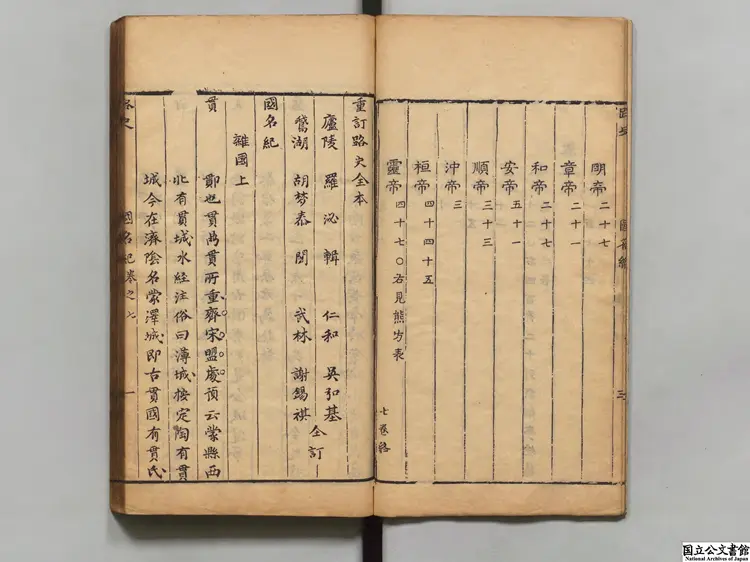 明帝二十七
章帝二十一
和帝二十七
安帝五十一
順帝三十三
沖帝三
桓帝四十四十五
靈帝四十七〇右見熊方表
七卷路
三
重訂路史全本
廬陵 羅泌 輯 仁和 吳弘基
鵞湖 胡夢泰 閱 武林 謝鍚祺 仝訂
國名紀
雜國上
貫 鄖也貫爲貫所重齊宋盟處預云蒙縣西
北有貫城水經注俗曰薄城按定陶有貫
城今在濟陰名蒙澤城即古貫國有貫氏
國名紀卷之七
一
国立公文書館
National Archives of Japan